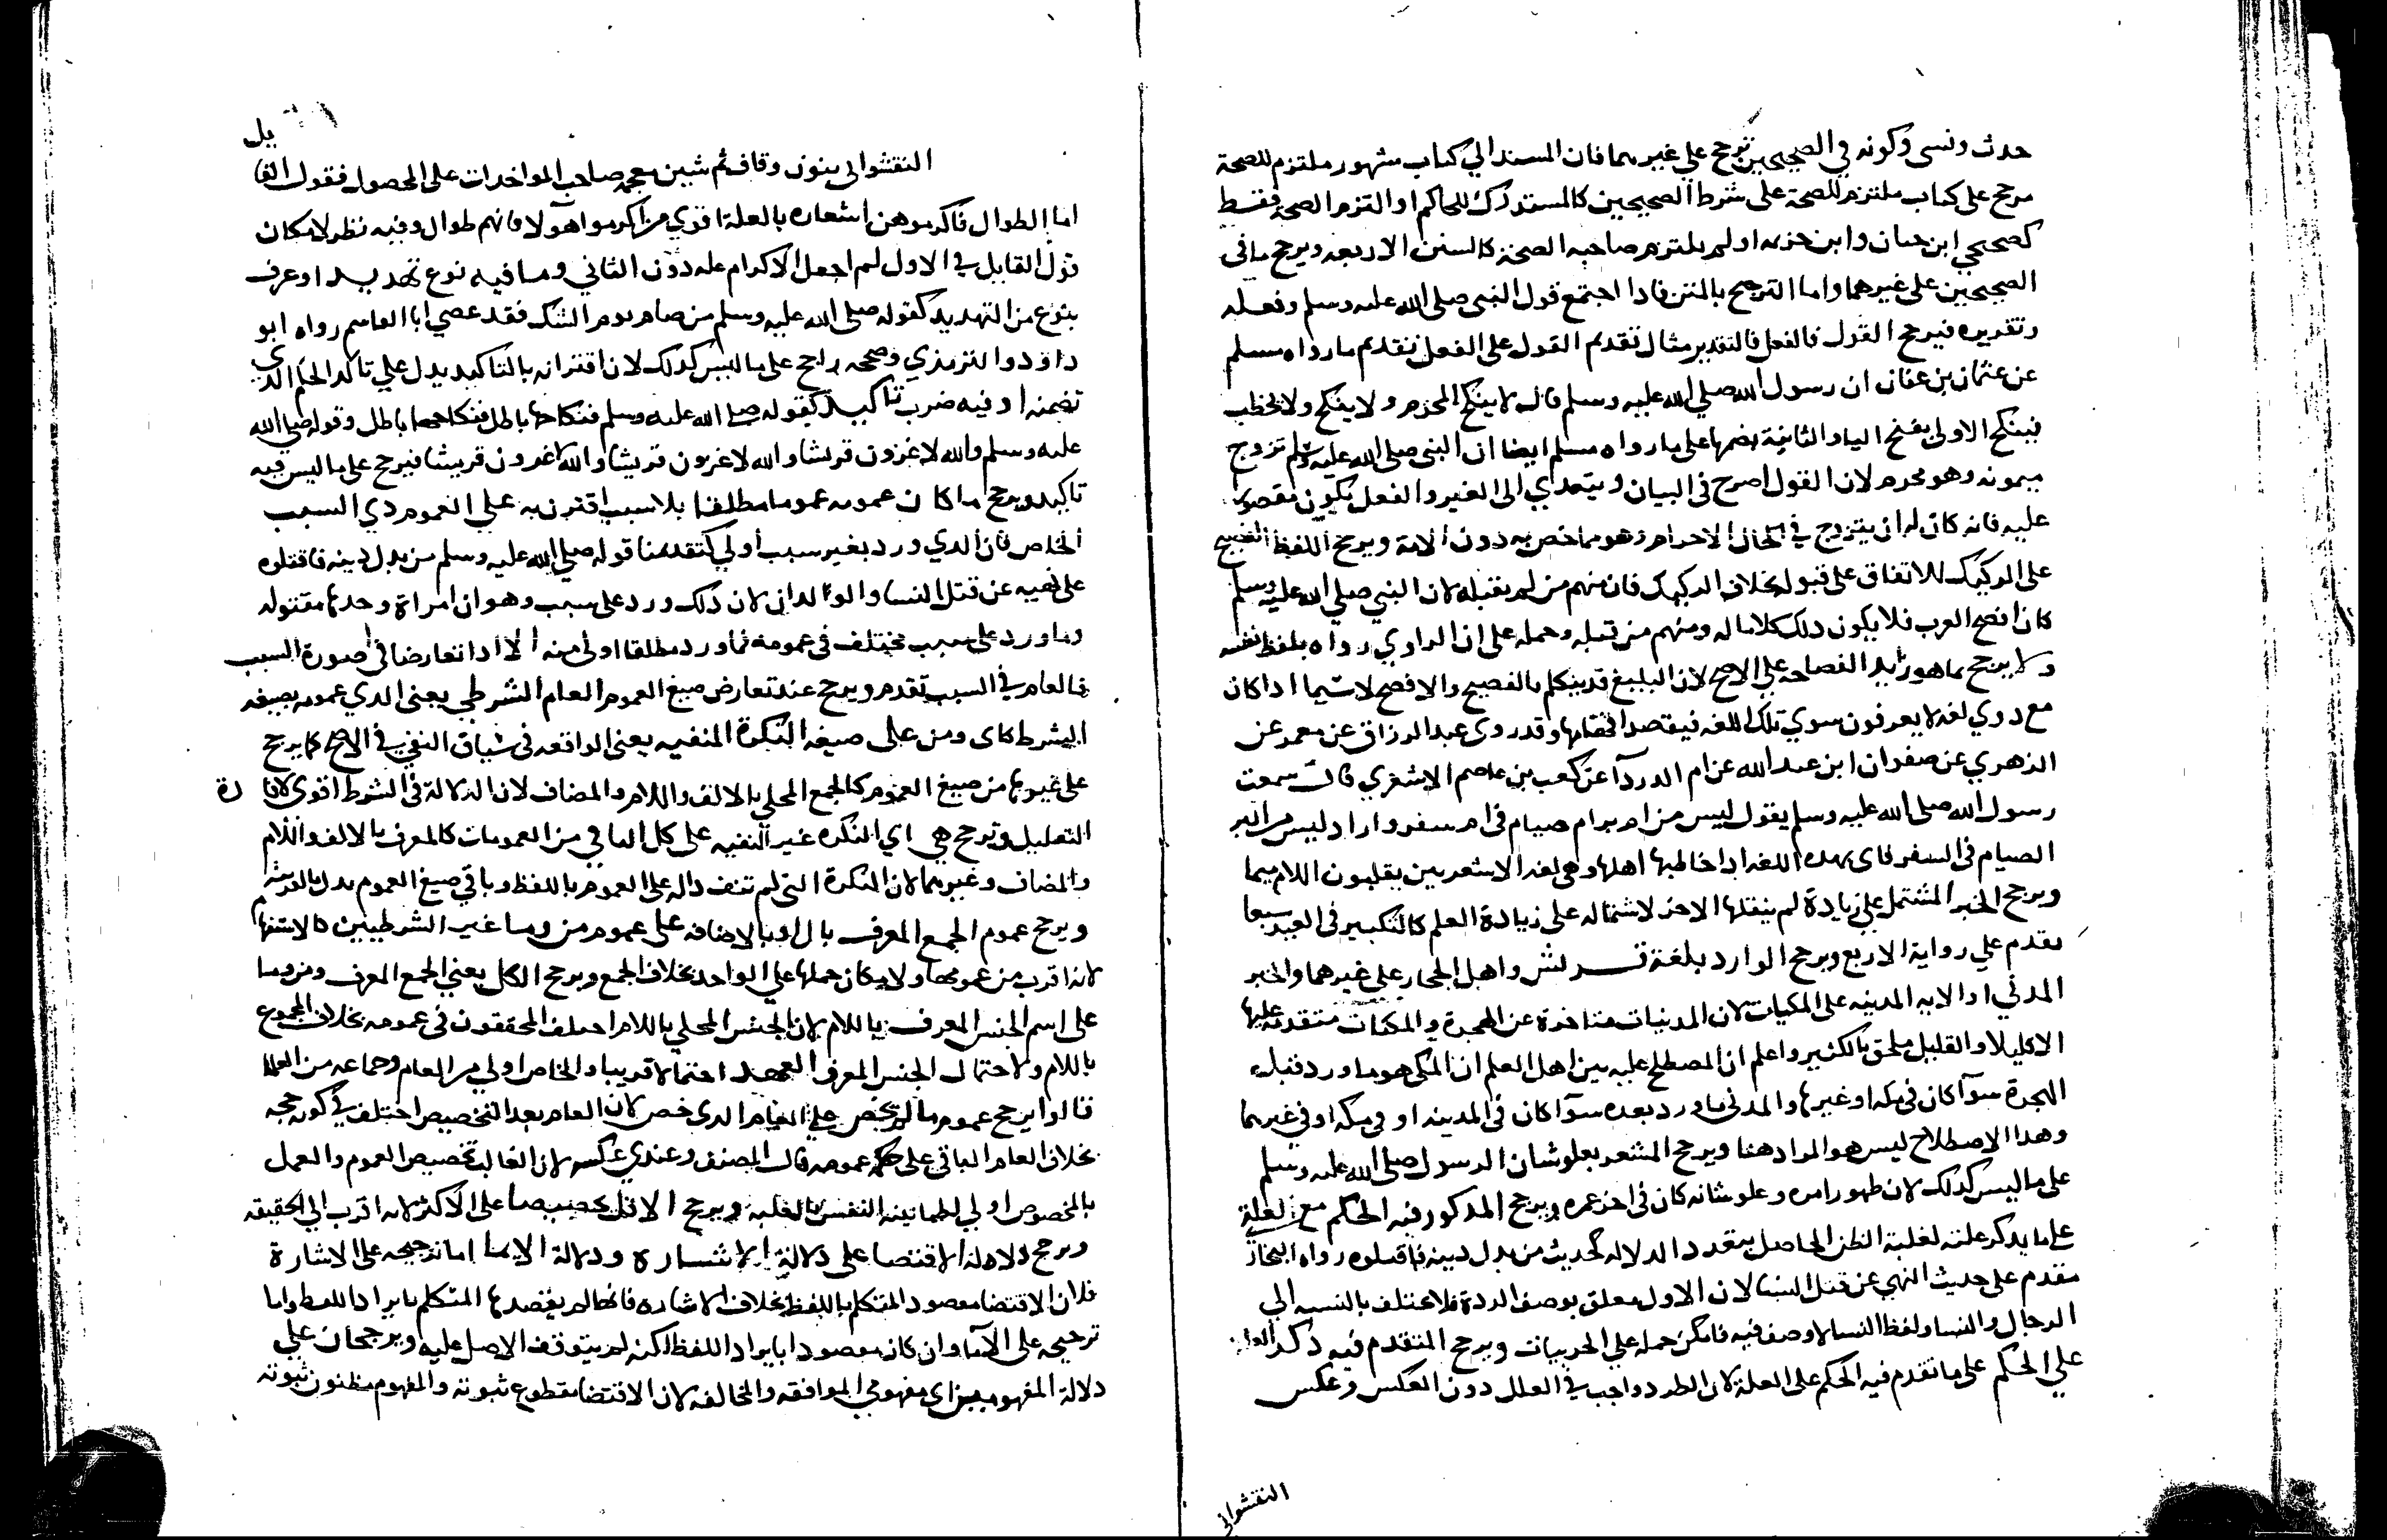 حدث ونسي وكونه في الصحيحين ترجح علي غيرهما فان المسند الي كتاب مشهور ملتزم للصحة
مرجح علي كتاب ملتزم للصحة علي شرط الصحيحين كالمستدرك للحاكم او التزم الصحة فقط
كصحيحي ابن حبان وابن خزيمه او لم يلتزم صاحبه الصحة كالسنن الاربعه ويرجح ما في
الصحيحين علي غيرهما واما الترجيح بالمتن فاذا اجتمع قول النبي صلي الله عليه وسلم وفعله
وتقديره فيرجح القول فالفعل فالتقدير مثال تقديم القول علي الفعل تقديم ما رواه مسلم
عن عثمان بن عفان ان رسول الله صلي الله عليه وسلم قال لا ينكح المحرم ولا ينكح ولا يخطب
فينكح الاولي بفتح الياء والثانية بضمها علي ما رواه مسلم ايضا ان النبي صلي الله عليه وسلم تزوج
ميمونه وهو محرم لان القول اصرح في البيان ويتعدي الي الغير والفعل يكون مقصورا
عليه فانه كان له ان يتزوج في الحال الاحرام وهو مما خص به دون الامة ويرجح اللفظ الفصيح
علي الركيك للاتفاق علي قبوله بخلاف الركيك فان منهم من لم يقبله لان النبي صلي الله عليه وسلم
كان افصح العرب فلا يكون ذلك كلاما له ومنهم من قبله وحمله علي ان الراوي رواه بلفظ نفسه
ولا يرجح بما هو زايد الفصاحه علي الاصح لان البليغ قد يتكلم بالفصيح والافصح لا سيما اذا كان
مع ذوي لغه لا يعرفون سوي تلك اللغه فيقصد افهامها وقد روي عبد الرزاق عن معمر عن
الزهري عن صفوان ابن عبد الله عن ام الدردآ عن كعب بن عاصم الاشعري قال سمعت
رسول الله صلي الله عليه وسلم يقول ليس من امبر ام صيام في ام سفر واراد ليس من البر
الصيام في السفر فاتي بهذه اللغه اذا خاطب بها اهلها وهي لغه الاشعريين يقلبون اللام ميما
ويرجح الخبر المشتمل علي زيادة لم ينقلها الاخر لاشتماله علي زيادة العلم كالتكبير في العيد سبعا
يقدم علي رواية الاربع ويرجح الوارد بلغة قريش واهل الحجاز علي غيرهما والخبر
المدني او الايه المدينه علي المكيات لان المدنيات متاخرة عن الهجرة والمكيات متقدمه عليها
الا قليلا والقليل ملحق بالكثير واعلم ان المصطلح عليه بين اهل العلم ان المكي هو ما ورد قبل
الهجرة سوآ كان في مكه او غيرها والمدني ما ورد بعده سوآ كان في المدينه او في مكه او في غيرهما
وهذا الاصطلاح ليس هو المراد هنا ويرجح المشعر بعلو شان الرسول صلي الله عليه وسلم
علي ما ليس كذلك لان ظهور امره وعلو شانه كان في اخر عمره ويرجح المذكور فيه الحكم مع العلة
علي ما يذكر علته لغلبة الظن الحاصل بتعدد الدلاله كحديث من بدل دينه فاقتلوه رواه البخاري
مقدم علي حديث النهي عن قتل النسا لان الاول معلق بوصف الردة فلا يختلف بالنسبه الي
الرجال والنسا ولفظ النسا لا وصف فيه فامكن حمله علي الحربيات ويرجح المتقدم فيه ذكر العله
علي الحكم علي ما تقدم فيه الحكم علي العلة لان الطرد واجب في العلل دون العكس وعكس
النقشواني
النقشواني بنون وقاف ثم شين معجمه صاحب المواخدات علي المحصول فقول القا
يل
اما الطوال فاكرموهن اشعاره بالعلة اقوي من اكرموا هولا فانهم طوال وفيه نظر لامكان
قول القايل في الاول لم اجعل الاكرام عله دون الثاني وما فيه نوع تهديد او عرف
بنوع من التهديد كقوله صلي الله عليه وسلم من صام يوم الشك فقد عصي ابا القاسم رواه ابو
داود والترمذي وصححه راجح علي ما ليس كذلك لان اقترانه بالتاكيد يدل علي تاكد الحكم الذي
تضمنه او فيه ضرب تاكيد كقوله صلي الله عليه وسلم فنكاحها باطل فنكاحها باطل وقوله صلي الله
عليه وسلم والله لاغزون قريشا والله لاغزون قريشا والله لاغزون قريشا فيرجح علي ما ليس فيه
تاكيد ويرجح ما كان عمومه عموما مطلقا بلا سبب اقترن به علي العموم ذي السبب
الخاص فان الذي ورد بغير سبب اولي كتقديمنا قوله صلي الله عليه وسلم من بدل دينه فاقتلوه
علي نهيه عن قتل النسا والولدان لان ذلك ورد علي سبب وهو ان امراة وجدها مقتوله
وما ورد علي سبب مختلف في عمومه فما ورد مطلقا اولي منه الا اذا تعارضا في صورة السبب
فالعام في السبب تقدم ويرجح عند تعارض صيغ العموم العام الشرطي يعني الذي عمومه بصيغه
الشرط كاي ومن علي صيغه النكرة المنفيه يعني الواقعه في سياق النفي في الاصح كما يرجح
علي غيرها من صيغ العموم كالجمع المحلي بالالف واللام والمضاف لان الدلالة في الشرط اقوي لافا دة
التعليل وترجح هي اي النكره غير النفيه علي كل الباقي من العمومات كالمعرف بالالف واللام
والمضاف وغيرهما لان النكرة التي لم تنف داله علي العموم باللفظ وباقي صيغ العموم يدل بالقرينه
ويرجح عموم الجمع المعرف بال او بالاضافه علي عموم من وما غير الشرطيتين كالاستفهام
لانه اقرب من عمومها ولامكان حملها علي الواحد بخلاف الجمع ويرجح الكل يعني الجمع المعرف ومن وما
علي اسم الجنس المعرف باللام لان الجنس المحلي باللام اختلف المحققون في عمومه بخلاف المجموع
باللام ولاحتمال الجنس المعرف العهد احتمالا قريبا والخاص اولي من العام وجماعه من العلما
قالوا يرجح عموم ما لم يخص علي العام الذي خص لان العام بعد التخصيص اختلف في كونه حجه
بخلاف العام الباقي علي عمومه قال المصنف وعندي عكسه لان الغالب تخصيص العموم والعمل
بالمخصوص اولي لطمانينه النفس بالغلبه ويرجح الاقل تخصيصا علي الاكثر لانه اقرب الي الحقيقه
ويرجح دلاله الاقتضا علي دلالة الاشارة ودلالة الايما اما ترجيحه علي الاشارة
فلان الاقتضا مقصود المتكلم باللفظ بخلاف الاشاره فانها لم يقصدها المتكلم بايراد اللفظ واما
ترجيحه علي الايما وان كان مقصودا بايراد اللفظ لكنه لم يتوقف الاصل عليه ويرجحان علي
دلالة المفهومين اي مفهومي الموافقه والمخالفه لان الاقتضا مقطوع ثبوته والمفهوم مظنون ثبوته